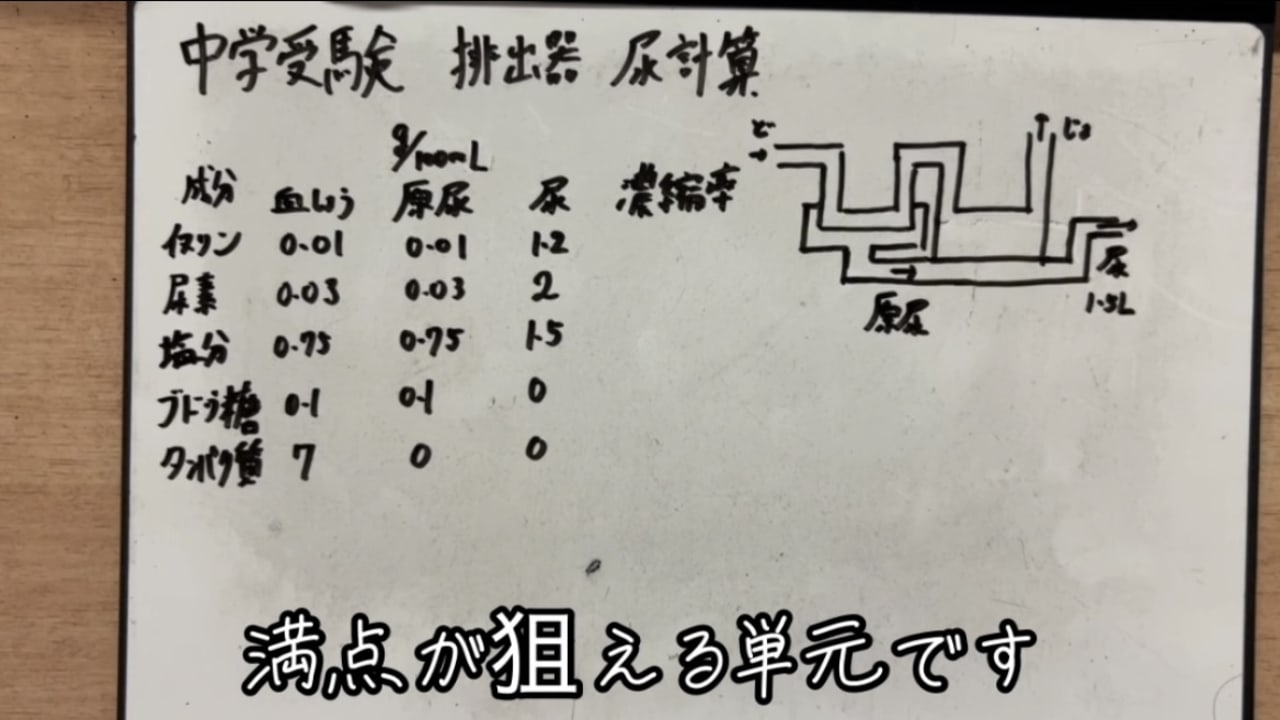 中学受験 排出器 尿計算
g/100mL
成分 血しょう 原尿 尿 濃縮率
イヌリン 0.01 0.01 1.2
尿素 0.03 0.03 2
塩分 0.75 0.75 1.5
ブドウ糖 0.1 0.1 0
タンパク質 7 0 0
ど
じょ
尿
1.5L
原尿
満点が狙える単元です